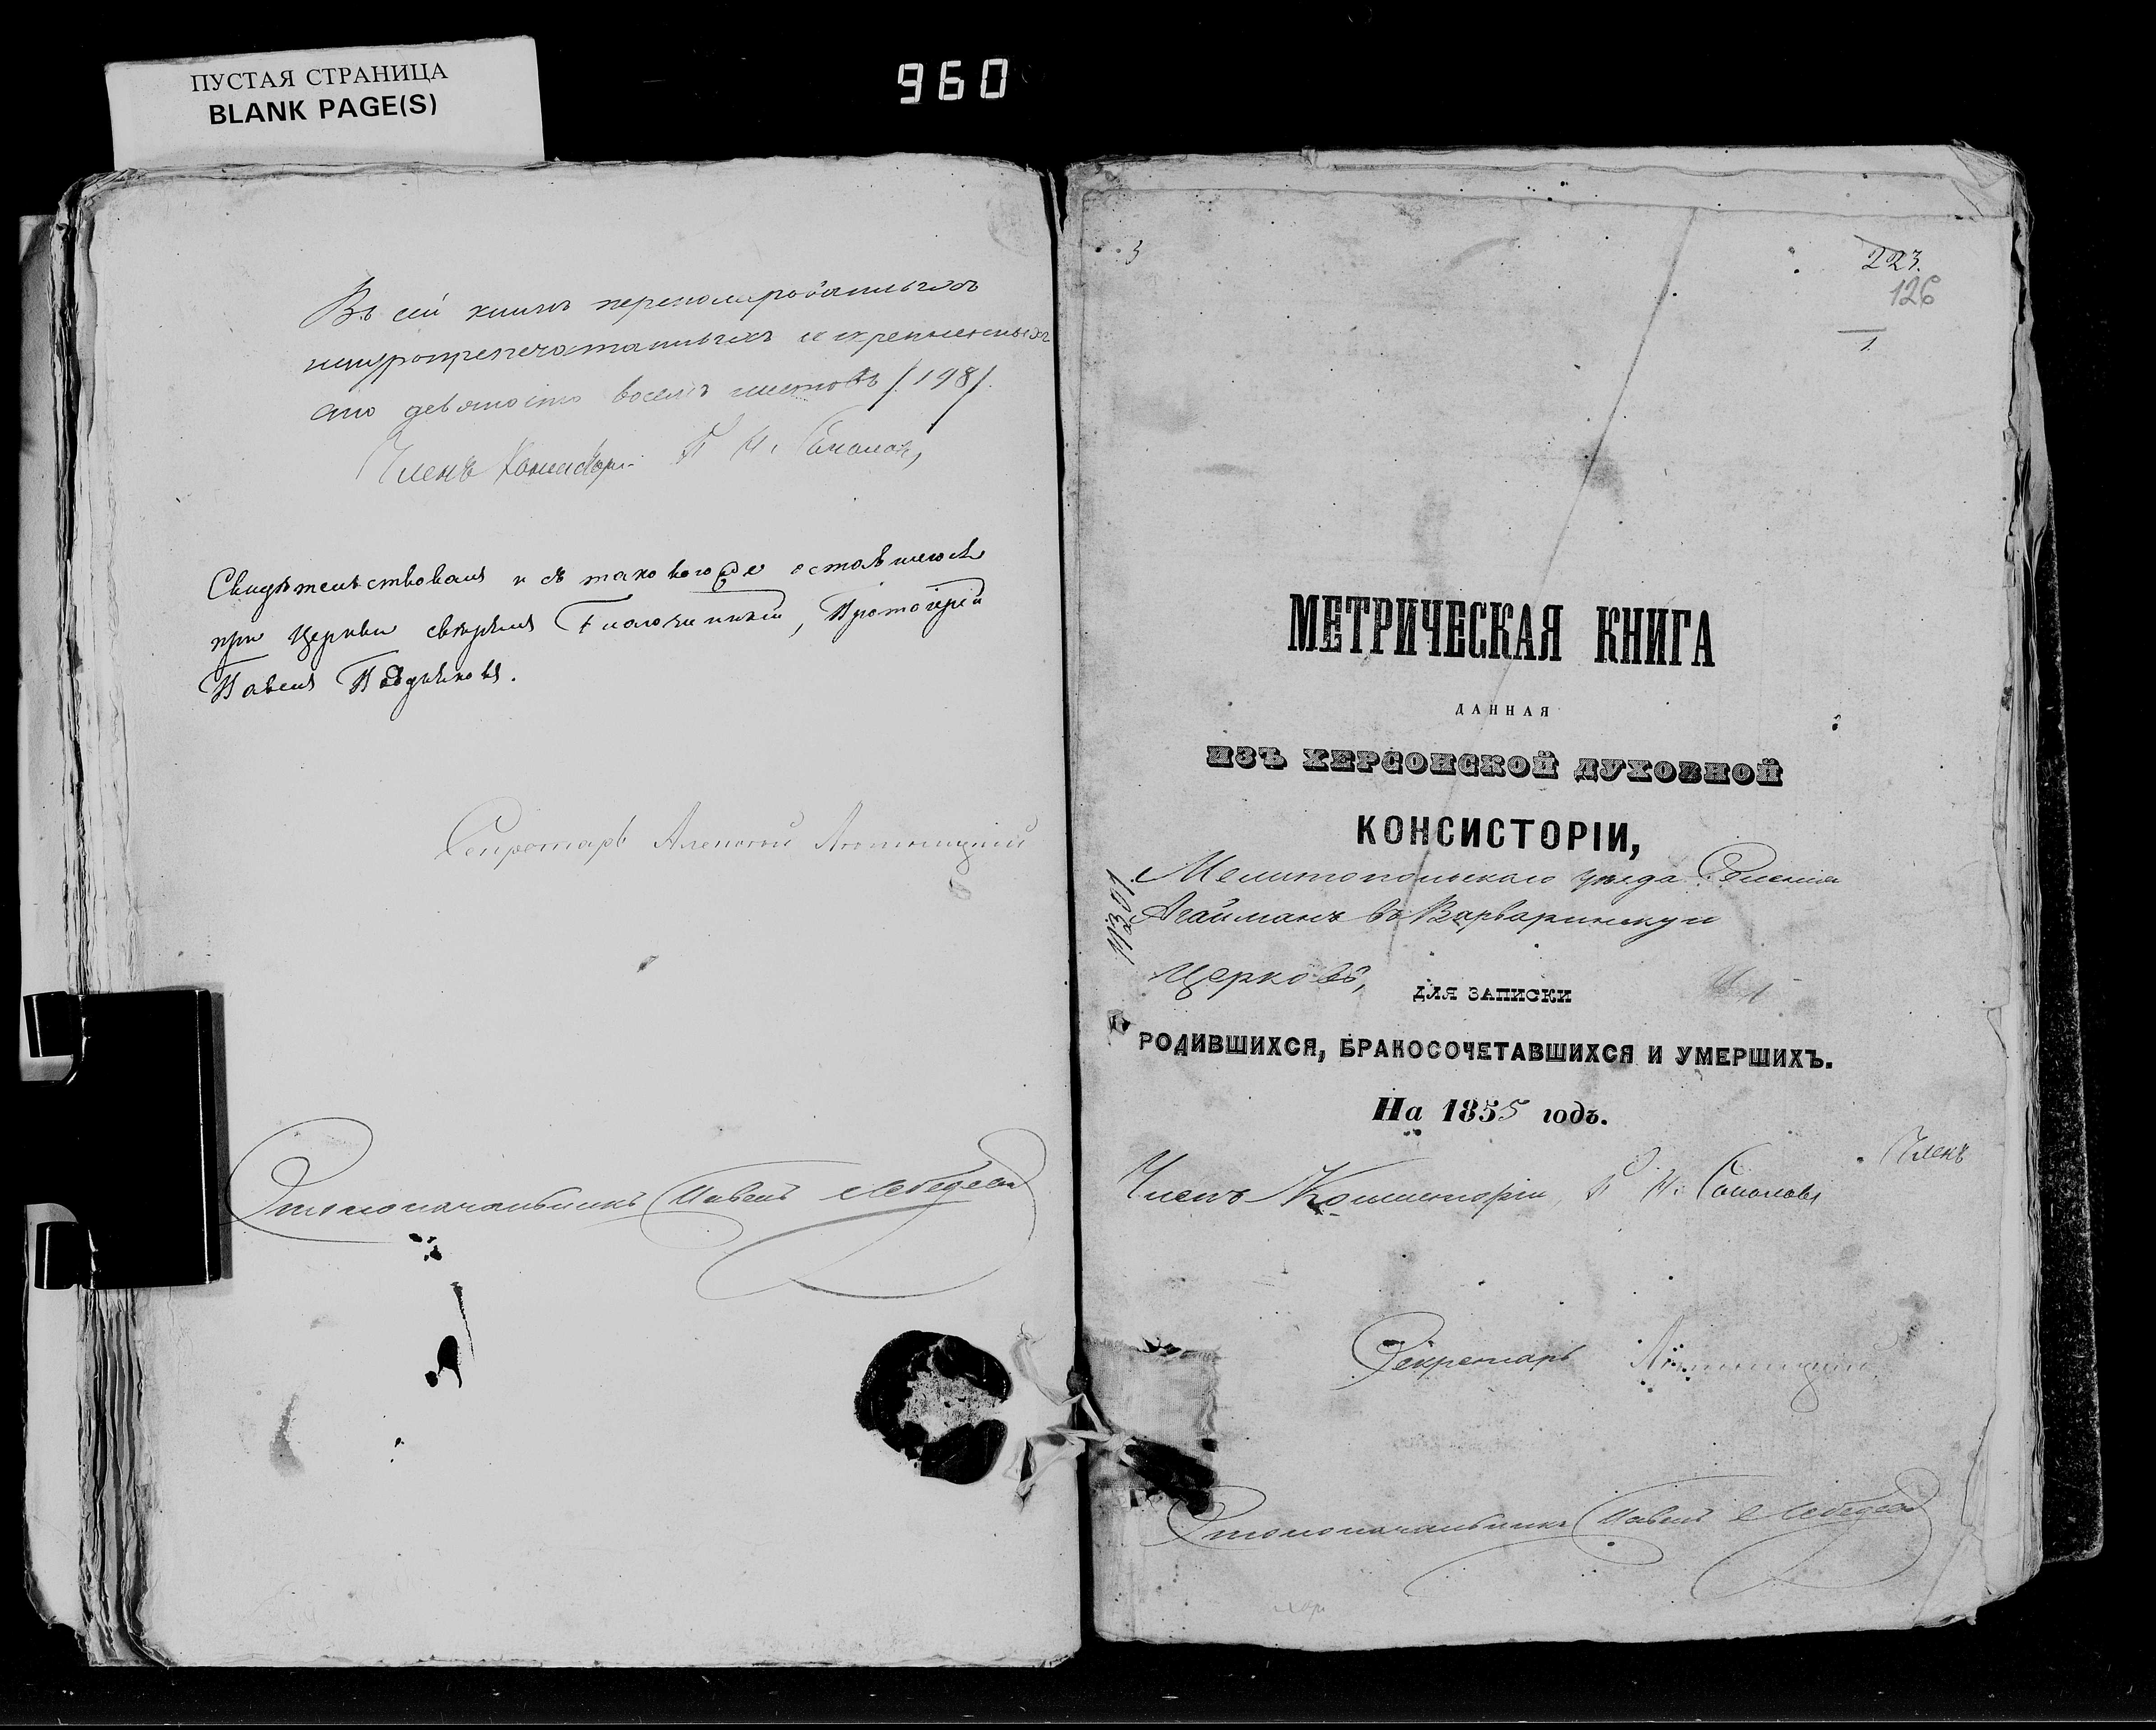 ПУСТАЯ СТРАНИЦА
BLANK PAGE(S)
960
Въ сей книгѣ перенумерованныхъ
шнуропрепечатанныхъ и скрепленныхъ
сто девяносто восемь листовъ /198/.
Членъ Консистор. П. Н. Соколовъ,
Свидѣтельствовалъ и съ таковою же оставшеюся
при Церкви свѣрялъ Благочинный, Протоіерей
Павелъ
Секретарь Алексей
Столоначальникъ Павелъ Лебедевъ
3
223.
126
1.
МЕТРИЧЕСКАЯ КНИГА
ДАННАЯ
ИЗЪ ХЕРСОНСКОЙ ДУХОВНОЙ
КОНСИСТОРІИ,
Мелитопольскаго уѣзда Селенія
Агайманъ въ Варваринскую
Церковь,
ДЛЯ ЗАПИСКИ
РОДИВШИХСЯ, БРАКОСОЧЕТАВШИХСЯ И УМЕРШИХЪ.
На 1855 годъ.
Членъ
Членъ Консисторіи, П. Н. Соколовъ
Секретарь
Столоначальникъ Павелъ Лебедевъ